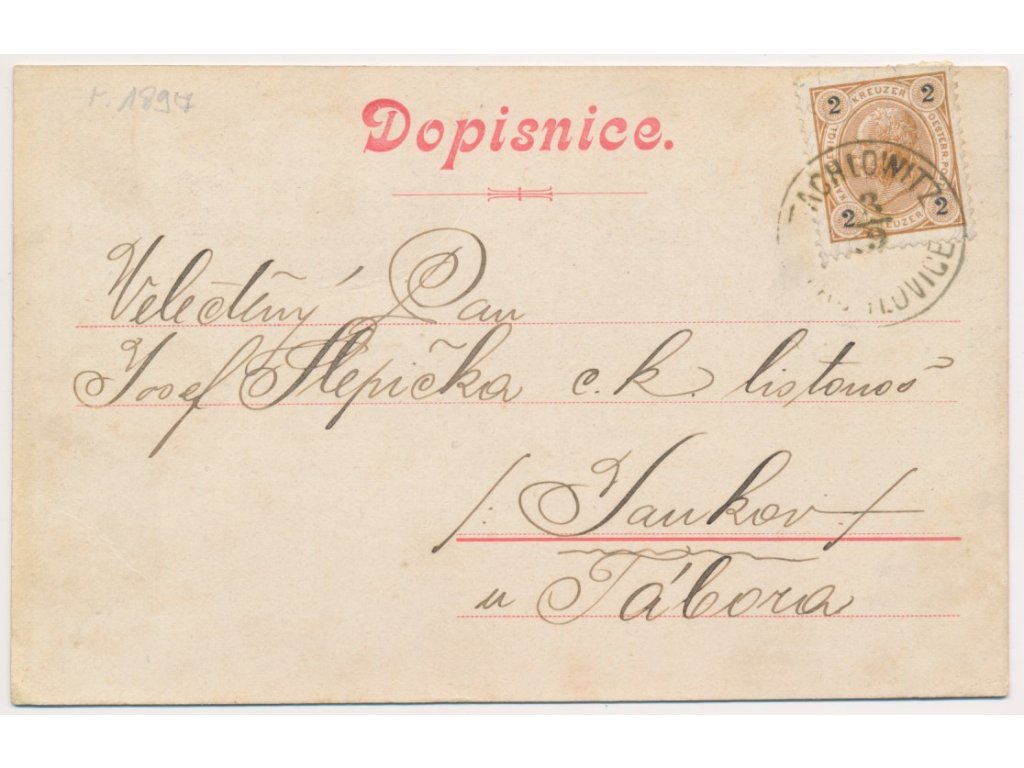 r. 1897
Dopisnice.
2 KREUZER 2
OESTERR. P
2 KREUZER 2
TACHLOWITZ
3/9
LOVICE
Velectěný Pan
Josef Slepička c. k. listonoš
/: Jankov /
u Tábora